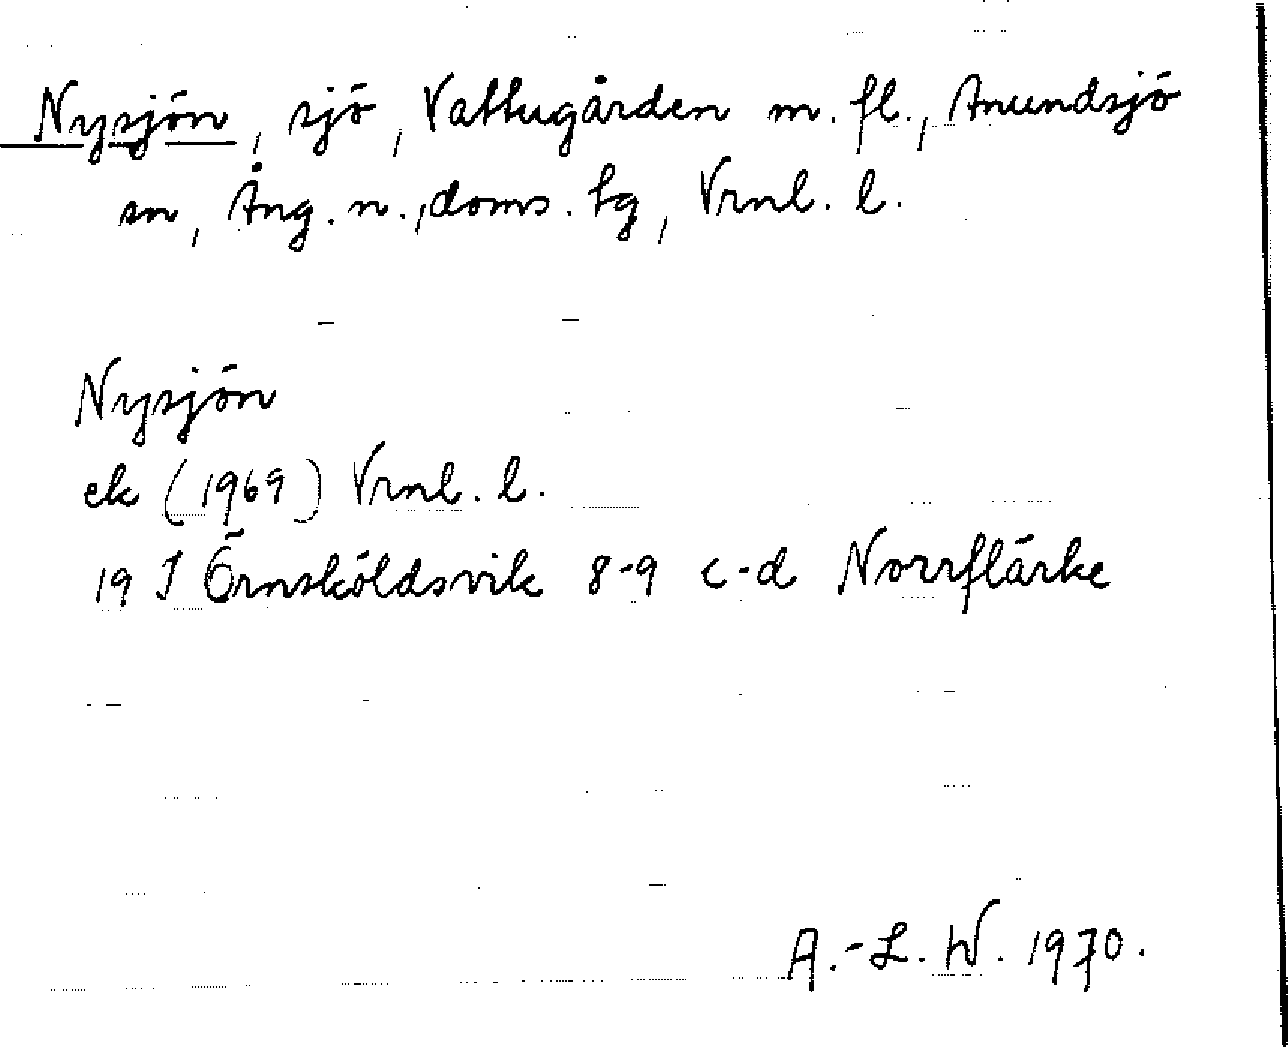 Nysjön, sjö, Vattugården m. fl., Anundsjö
sn, Ång. n., doms. tg, Vrnl. l.
Nysjön
ek (1969) Vrnl. l.
19 I Örnsköldsvik 8-9 c-d Norrflärke
A.-L. W. 1970.